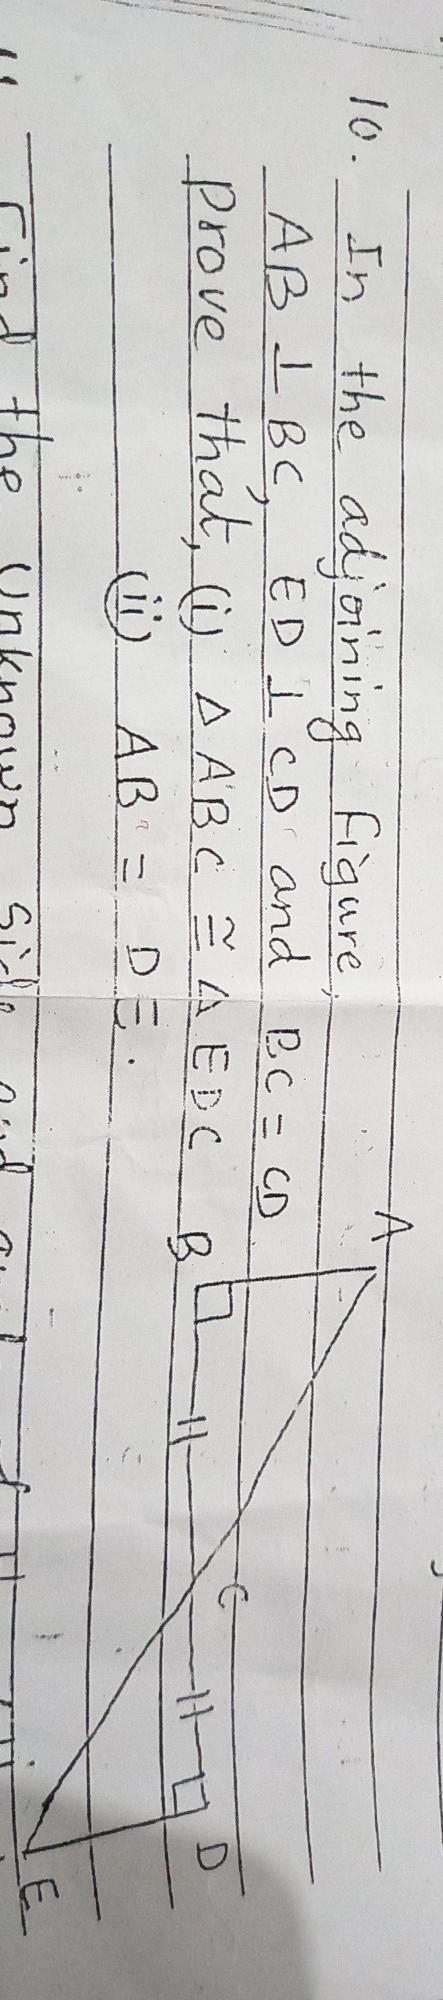 10. In the adjoining figure,
AB ⊥ BC, ED ⊥ CD and BC = CD
Prove that, (i) Δ ABC ≅ Δ EDC
(ii) AB = DE.
A
B
C
D
E
Find the unknown side and